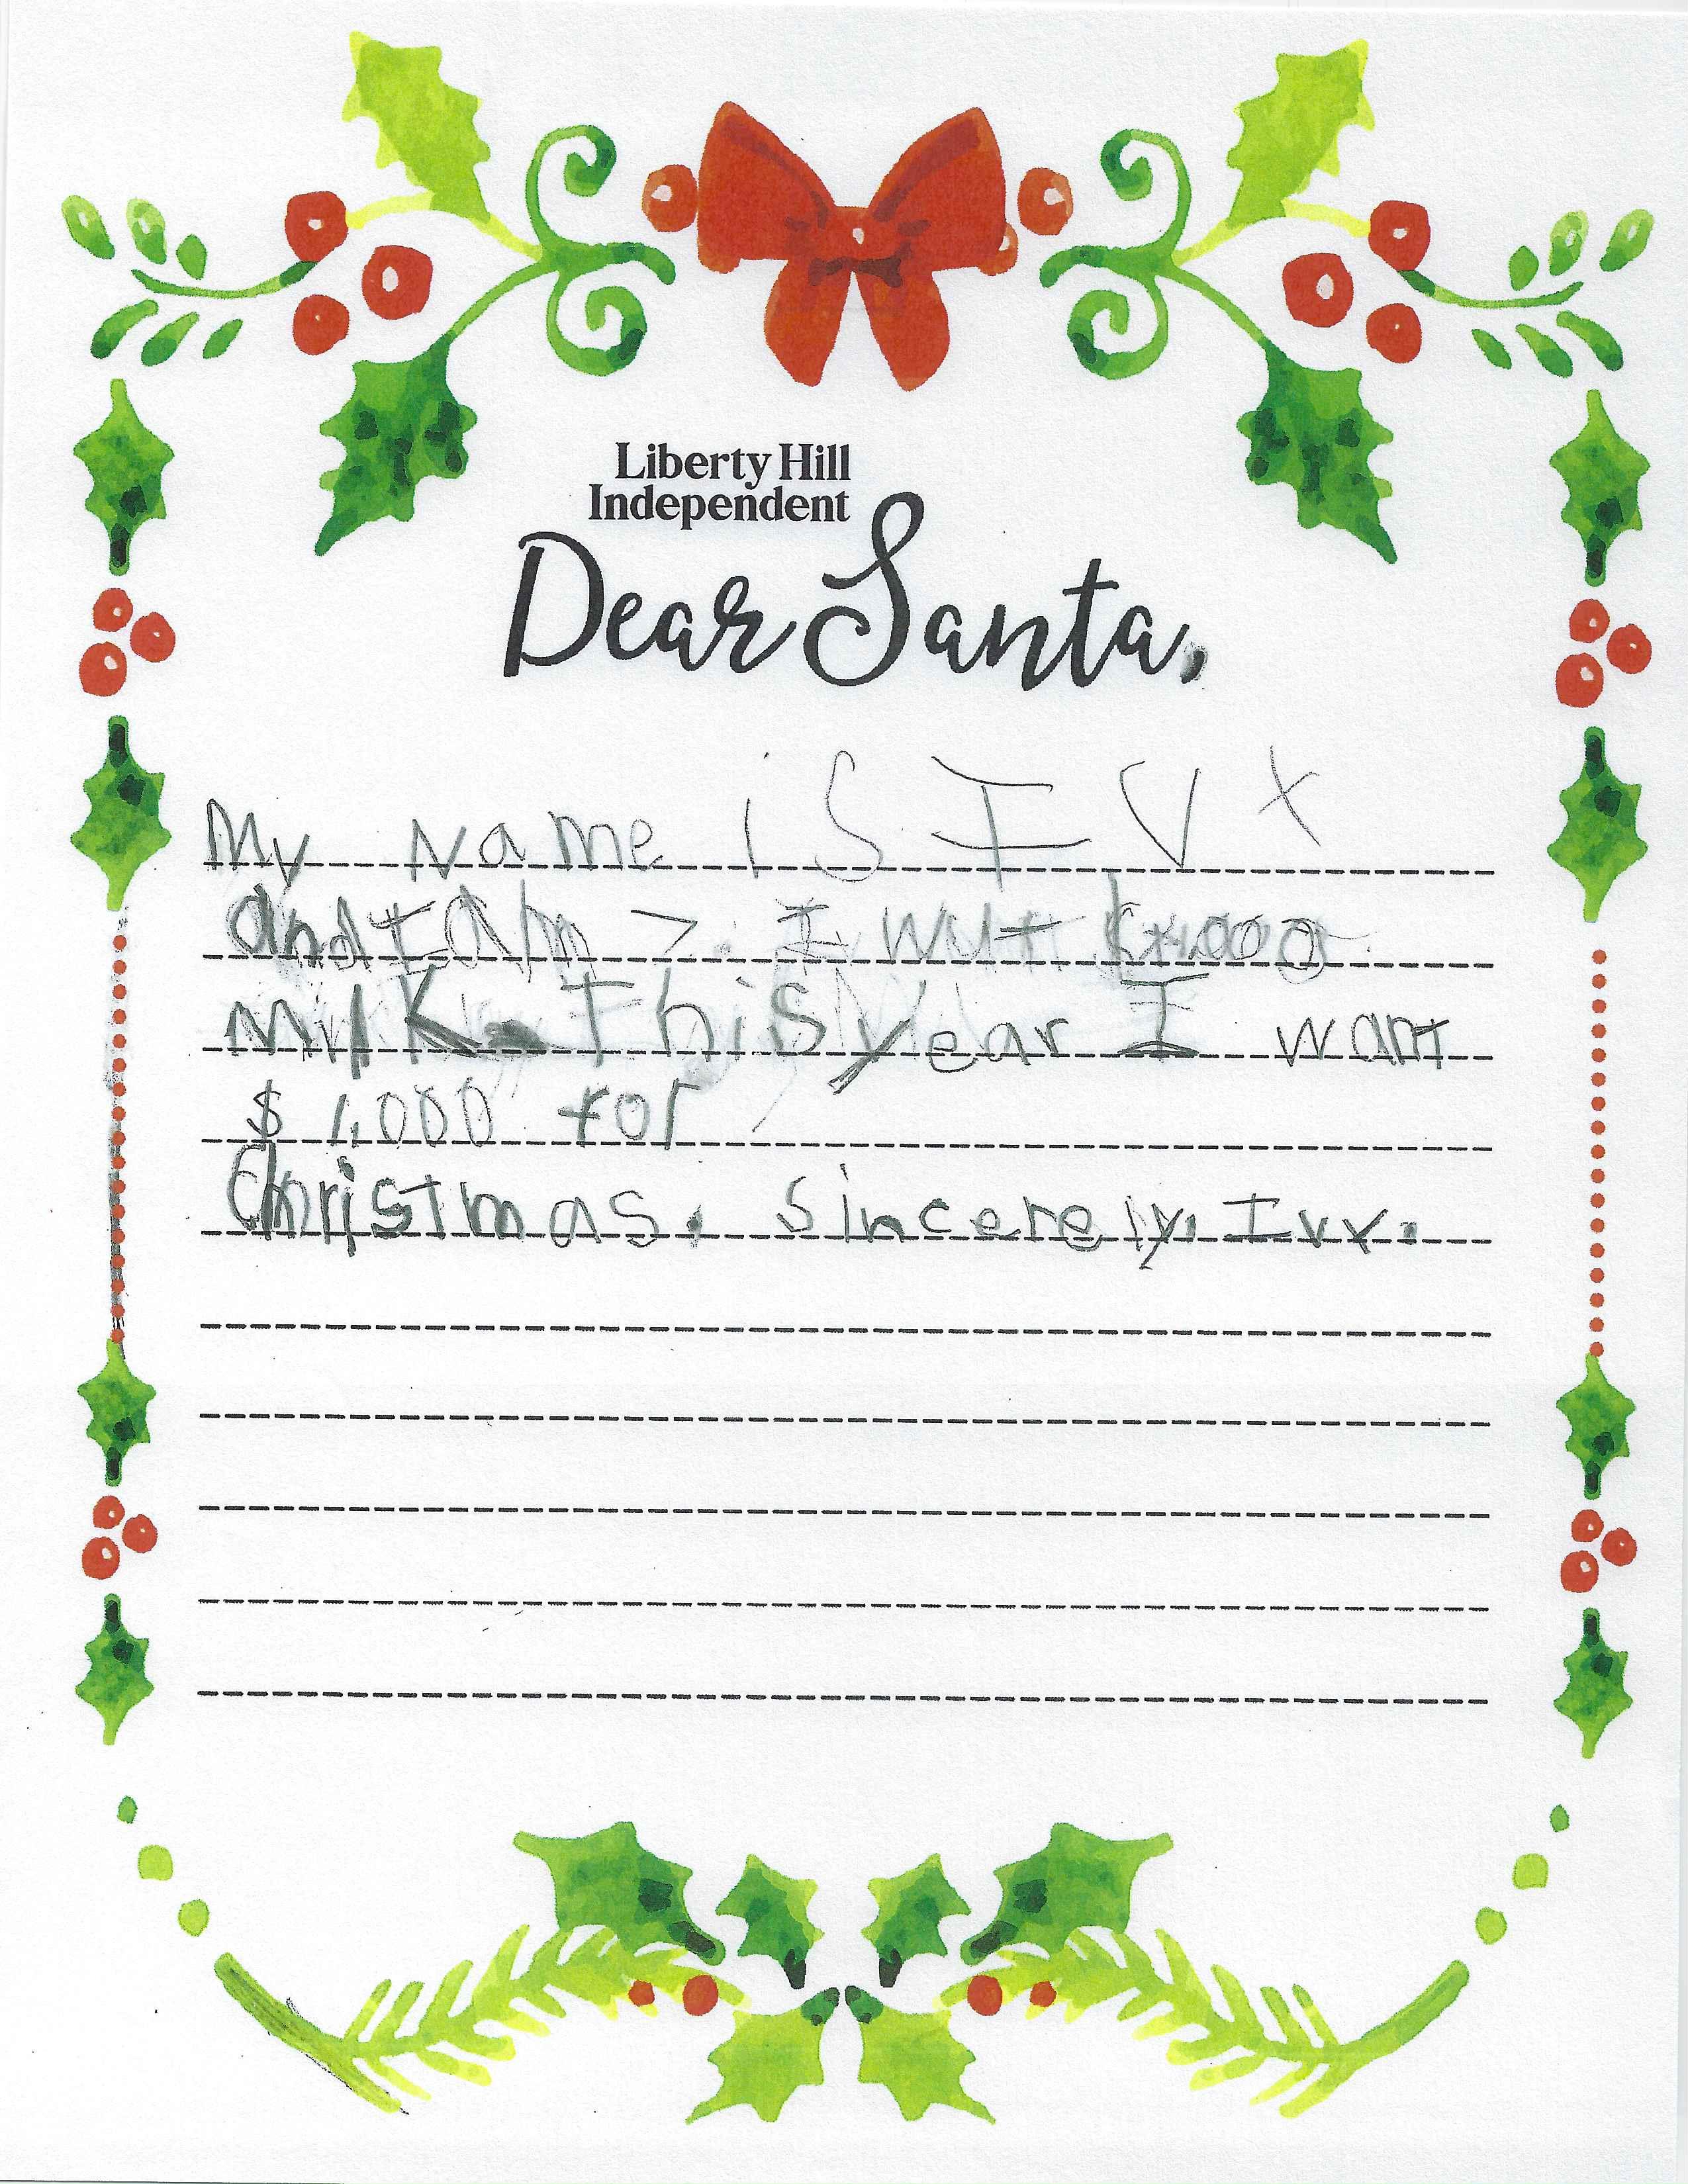 Liberty Hill
Independent
Dear Santa,
My Name is IVY
and I Am 7. I
Milk. This year I want
$ 1,000 for
Christmas. Sincerely, Ivy.